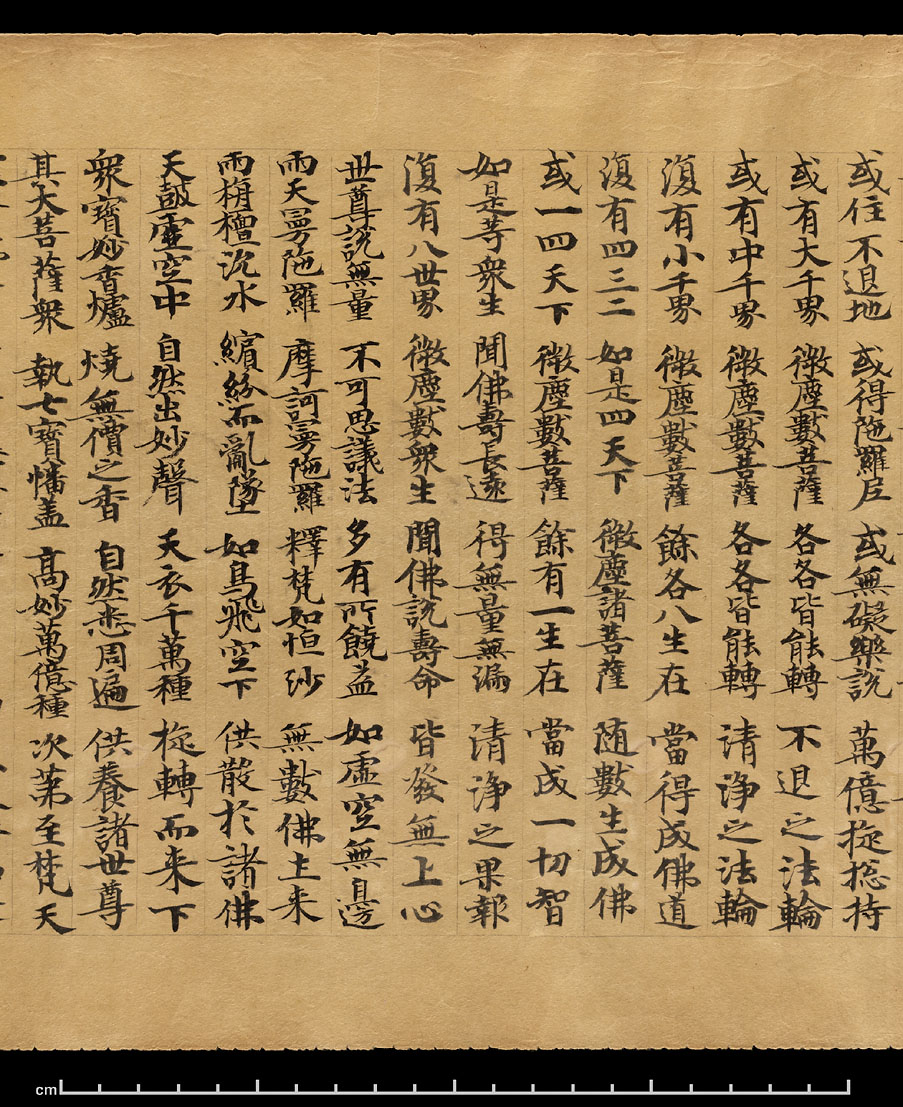 或住不退地 或得陁羅尼 或無礙樂說 萬億旋揔持
或有大千界 微塵數菩薩 各各皆能轉 不退之法輪
或有中千界 微塵數菩薩 各各皆能轉 清淨之法輪
復有小千界 微塵數菩薩 餘各八生在 當得成佛道
復有四三二 如是四天下 微塵諸菩薩 随數生成佛
或一四天下 微塵數菩薩 餘有一生在 當成一切智
如是等衆生 聞佛壽長遠 得無量無漏 清淨之果報
復有八世界 微塵數衆生 聞佛說壽命 皆發無上心
世尊說無量 不可思議法 多有所饒益 如虛空無邊
雨天曼陁羅 摩訶曼陁羅 釋梵如恒沙 無數佛土来
雨栴檀沉水 繽紛而亂墜 如鳥飛空下 供散於諸佛
天皷虛空中 自然出妙聲 天衣千萬種 旋轉而来下
衆寶妙香爐 燒無價之香 自然悉周遍 供養諸世尊
其大菩薩衆 執七寶幡盖 高妙萬億種 次第至梵天
cm